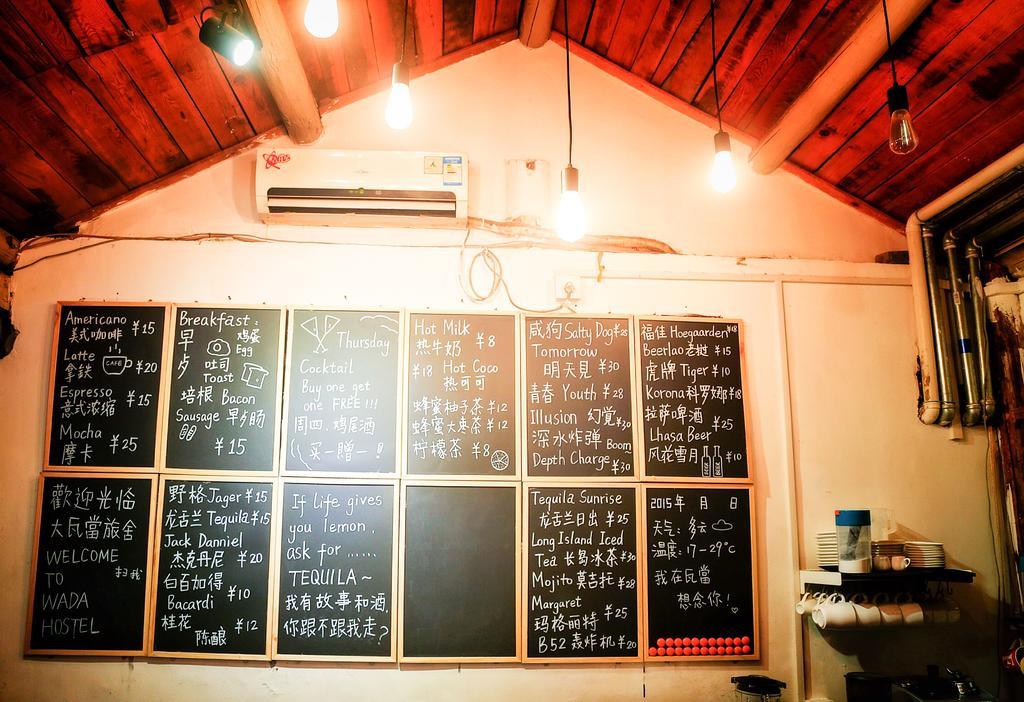 Americano
美式咖啡 ¥15
Latte
拿鉄 CAFE ¥20
Espresso
意式浓缩 ¥15
Mocha
摩卡 ¥25
Breakfast:
早 鸡蛋
Egg
吐司
Toast
培根 Bacon
Sausage 早夕肠
¥15
Thursday
Cocktail
Buy one get
one FREE!!!
周四.鸡尾酒
买一赠一!
Hot Milk
热牛奶 ¥8
¥18 Hot Coco
热可可
蜂蜜柚子茶 ¥12
蜂蜜大枣茶 ¥12
柠檬茶 ¥8
咸狗 Salty Dog ¥28
Tomorrow
明天見 ¥30
青春 Youth ¥28
Illusion 幻覚 ¥30
深水炸彈 Boom
Depth Charge ¥30
福佳 Hoegaarden ¥18
Beerlao 老挝 ¥15
虎牌 Tiger ¥10
Korona 科罗娜 ¥18
拉萨啤酒 ¥25
Lhasa Beer
风花雪月 BEER BEER ¥10
歡迎光临
大瓦當旅舍
WELCOME
TO 扫我
WADA
HOSTEL
野格 Jager ¥15
龙舌兰 Tequila ¥15
Jack Danniel
杰克丹尼 ¥20
白百加得
Bacardi ¥10
桂花
陈酿 ¥12
If life gives
you lemon,
ask for ......
TEQUILA~
我有故事和酒.
你跟不跟我走?
Tequila Sunrise
龙舌兰日出 ¥25
Long Island Iced
Tea 长岛冰茶 ¥30
Mojito 莫吉托 ¥28
Margaret
玛格丽特 ¥25
B52 轰炸机 ¥20
2015年 月 日
天气: 多云
温度: 17-29°C
我在瓦當
想念你!